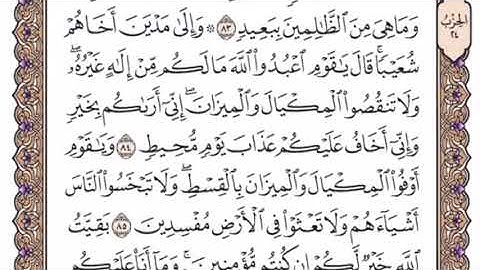 وَمَا هِيَ مِنَ الظَّالِمِينَ بِبَعِيدٍ ٨٣ ۞ وَإِلَىٰ مَدْيَنَ أَخَاهُمْ
الحزب ٢٤
شُعَيْبًا ۚ قَالَ يَاقَوْمِ اعْبُدُوا اللَّهَ مَا لَكُم مِّنْ إِلَٰهٍ غَيْرُهُ ۖ
وَلَا تَنقُصُوا الْمِكْيَالَ وَالْمِيزَانَ ۚ إِنِّي أَرَاكُم بِخَيْرٍ
وَإِنِّي أَخَافُ عَلَيْكُمْ عَذَابَ يَوْمٍ مُّحِيطٍ ٨٤ وَيَاقَوْمِ
أَوْفُوا الْمِكْيَالَ وَالْمِيزَانَ بِالْقِسْطِ ۖ وَلَا تَبْخَسُوا النَّاسَ
أَشْيَاءَهُمْ وَلَا تَعْثَوْا فِي الْأَرْضِ مُفْسِدِينَ ٨٥ بَقِيَّتُ
اللَّهِ خَيْرٌ لَّكُمْ إِن كُنتُم مُّؤْمِنِينَ ۚ وَمَا أَنَا عَلَيْكُم